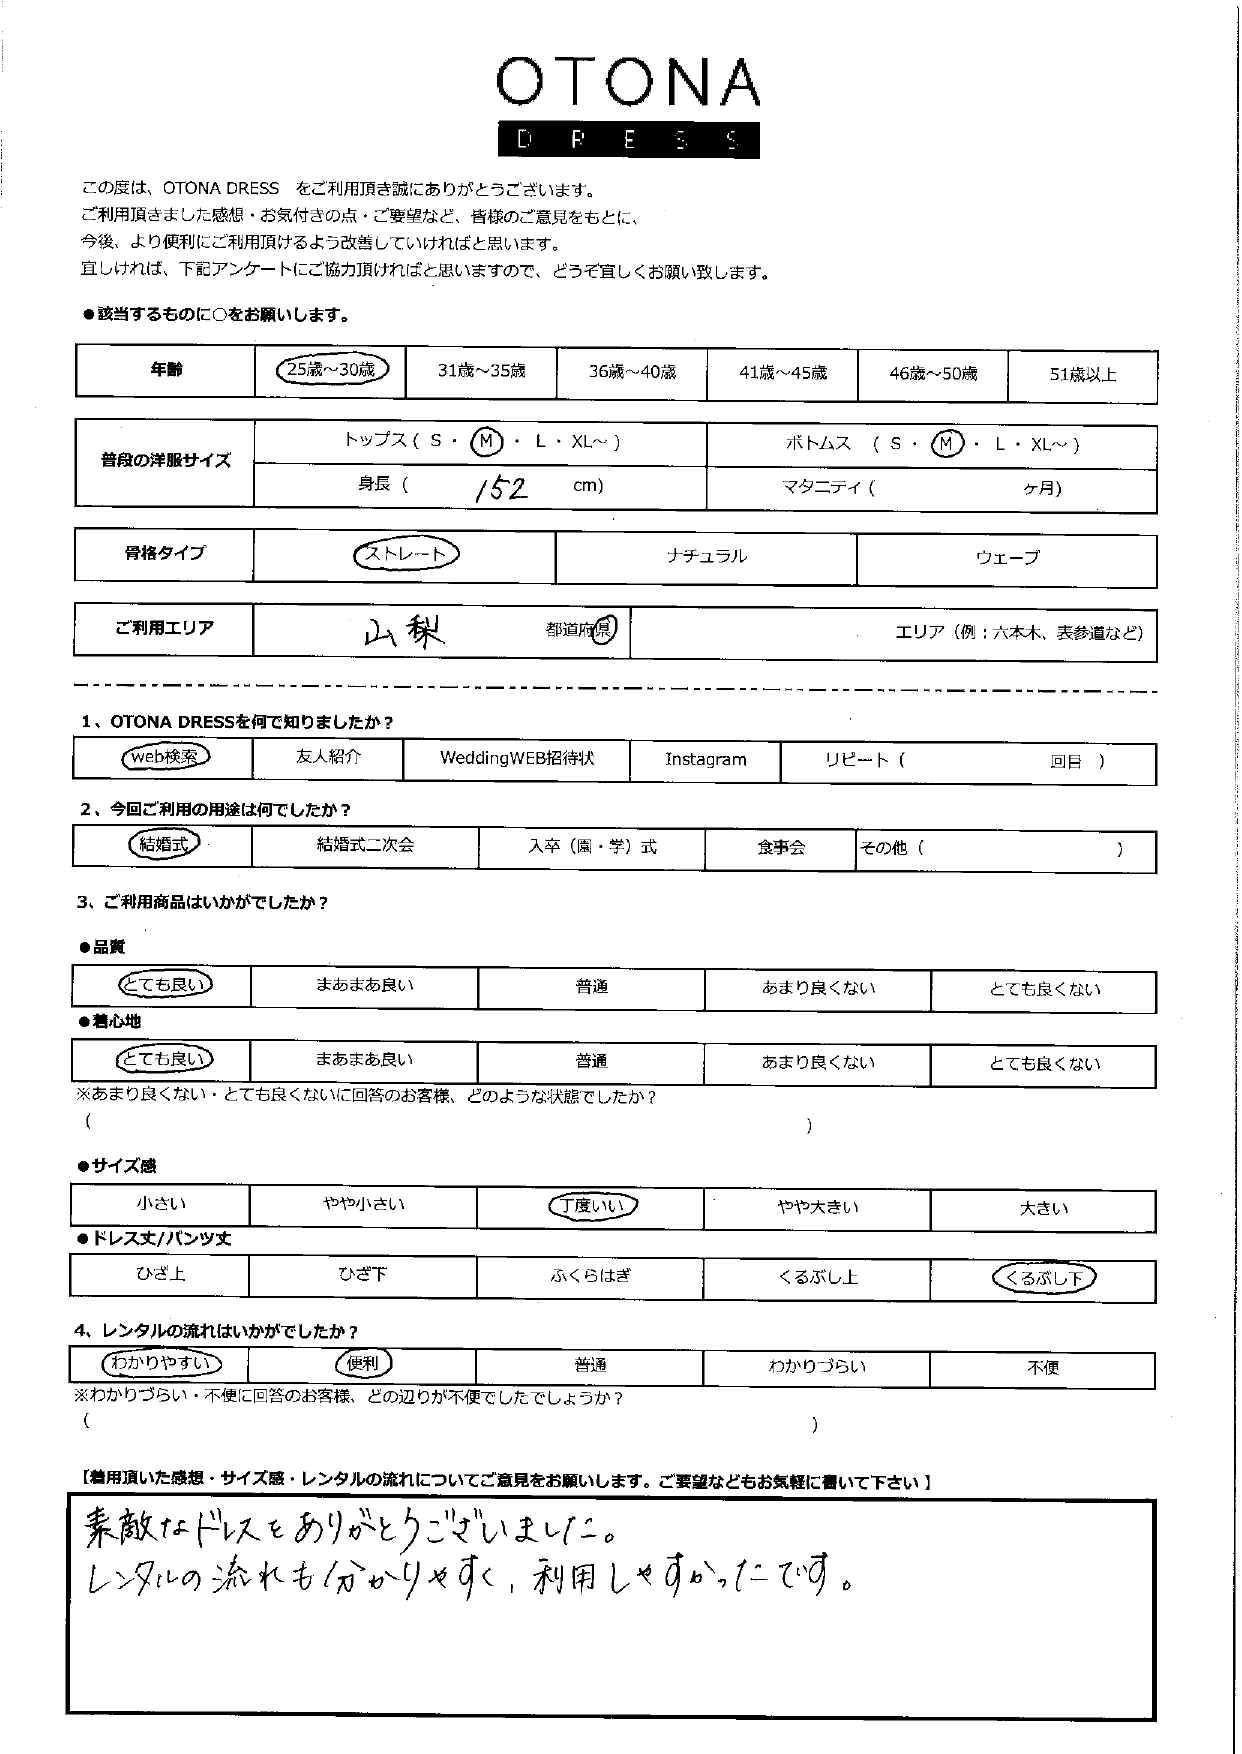 OTONA
DRESS
この度は、OTONA DRESS をご利用頂き誠にありがとうございます。
ご利用頂きました感想・お気付きの点・ご要望など、皆様のご意見をもとに、
今後、より便利にご利用頂けるよう改善していければと思います。
宜しければ、下記アンケートにご協力頂ければと思いますので、どうぞ宜しくお願い致します。
●該当するものに○をお願いします。
年齢 25歳～30歳 31歳～35歳 36歳～40歳 41歳～45歳 46歳～50歳 51歳以上
普段の洋服サイズ トップス ( S ・ M ・ L ・ XL～ ) ボトムス ( S ・ M ・ L ・ XL～ )
身長 ( 152 cm) マタニティ ( ヶ月)
骨格タイプ ストレート ナチュラル ウェーブ
ご利用エリア 山梨 都道府県 エリア（例：六本木、表参道など）
1、OTONA DRESSを何で知りましたか？
web検索 友人紹介 WeddingWEB招待状 Instagram リピート ( 回目 )
2、今回ご利用の用途は何でしたか？
結婚式 結婚式二次会 入卒（園・学）式 食事会 その他 ( )
3、ご利用商品はいかがでしたか？
●品質
とても良い まあまあ良い 普通 あまり良くない とても良くない
●着心地
とても良い まあまあ良い 普通 あまり良くない とても良くない
※あまり良くない・とても良くないに回答のお客様、どのような状態でしたか？
( )
●サイズ感
小さい やや小さい 丁度いい やや大きい 大きい
●ドレス丈/パンツ丈
ひざ上 ひざ下 ふくらはぎ くるぶし上 くるぶし下
4、レンタルの流れはいかがでしたか？
わかりやすい 便利 普通 わかりづらい 不便
※わかりづらい・不便に回答のお客様、どの辺りが不便でしたでしょうか？
( )
【着用頂いた感想・サイズ感・レンタルの流れについてご意見をお願いします。ご要望などもお気軽に書いて下さい】
素敵なドレスをありがとうございました。
レンタルの流れも分かりやすく、利用しやすかったです。